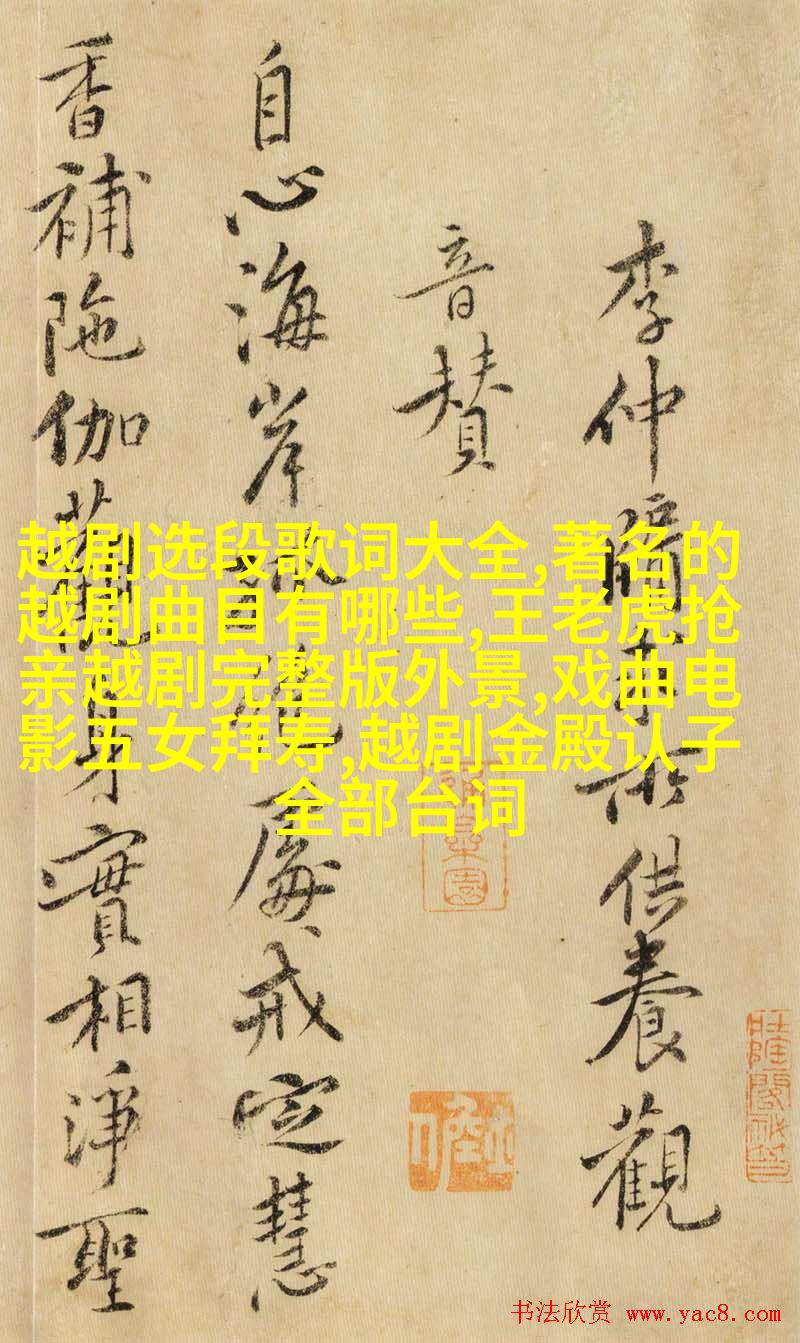 李仲牖事所供養觀
音贊
自心海岸
處戒定慧
香補陁伽
身實相淨聖
越剧选段歌词大全,著名的
越剧曲目有哪些,王老虎抢
亲越剧完整版外景,戏曲电
影五女拜寿,越剧金殿认子
全部台词
书法欣赏 www.yac8.com